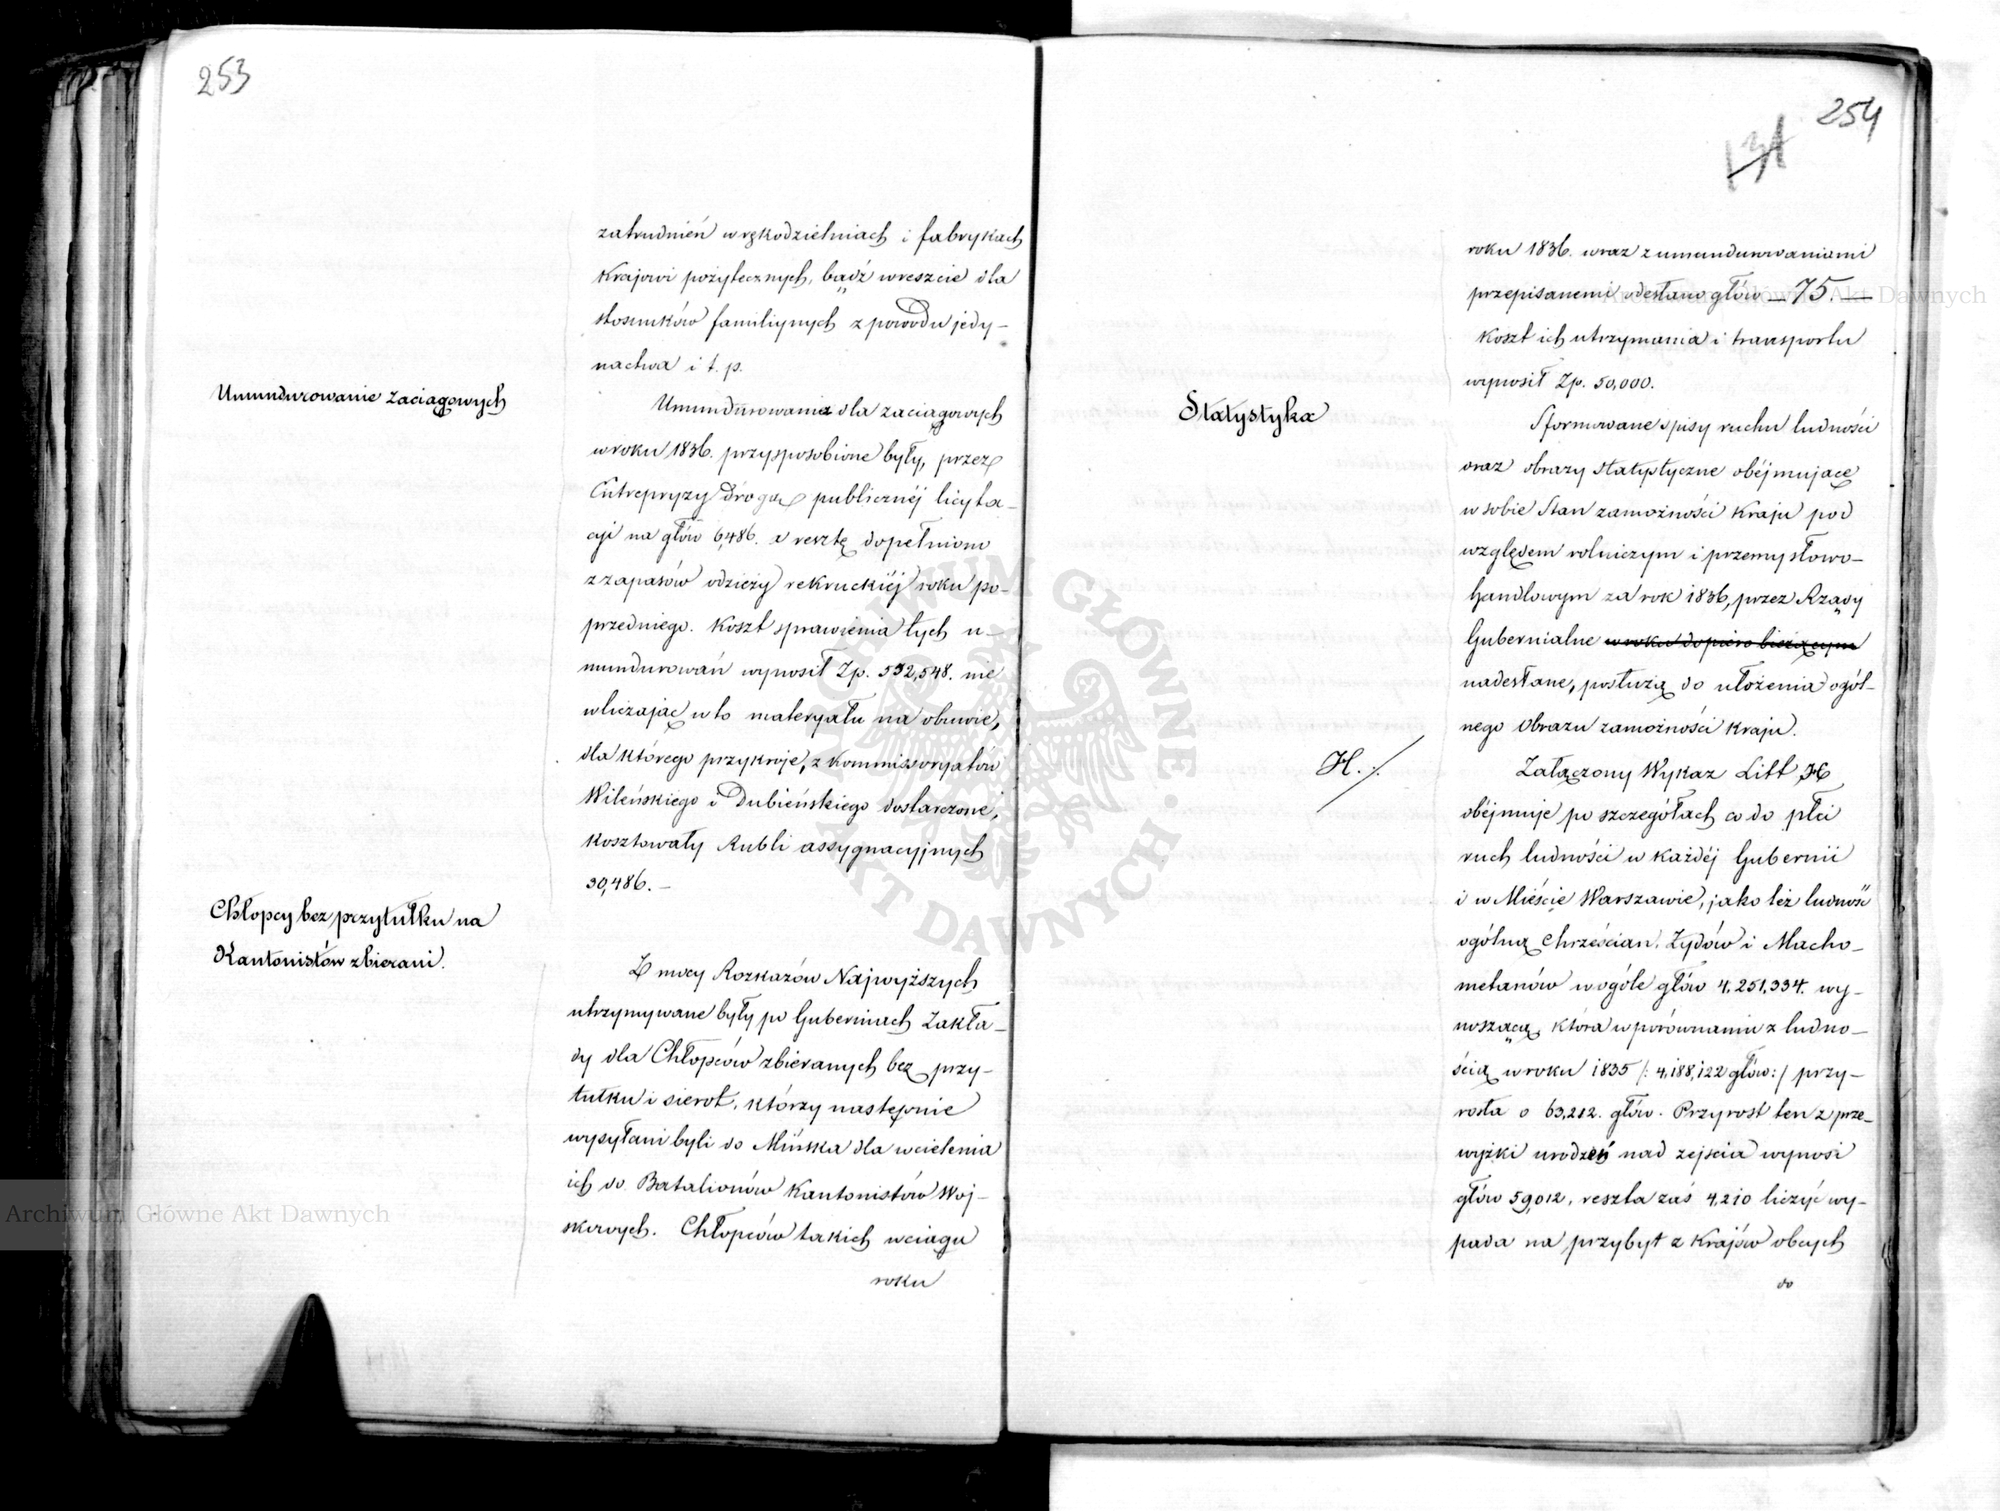 253
zatrudnień w rękodzielniach i fabrykach
Krajowi pożytecznych, bądź wreszcie dla
stosunków familiynych z powodu jedy-
nactwa i t. p.
Umundurowanie zaciągowych
Umundurowania dla zaciągowych
w roku 1836. przysposobione były, przez
Entrepryzy drogą publicznéj licyta-
cji na głów 6,486. a resztę dopełniono
z zapasów odzieży rekruckiéj roku po-
przedniego. Koszt sprawienia tych u-
mundurowań wynosił Zp. 552,548. nie
wliczając w to materyału na obuwie,
dla którego przykroje, z Kommissoryatów
Wileńskiego i Dubieńskiego dostarczone,
kosztowały Rubli assygnacyjnych
30,486. —
Chłopcy bez przytułku na
Kantonistów zbierani.
Z mocy Rozkazów Najwyższych
utrzymywane były po Guberniach Zakła-
dy dla Chłopców zbieranych bez przy-
tułku i sierot, którzy następnie
wysyłani byli do Mińska dla wcielenia
ich do Batalionów Kantonistów Woj-
skowych. Chłopców takich w ciągu
roku
254
131
roku 1836. wraz z umundurowaniami
przepisanemi odesłano głów — 75. —
Koszt ich utrzymania i transportu
wynosił Zp. 50,000.
Statystyka
Sformowane spisy ruchu ludności
oraz obrazy statystyczne obéjmujące
w sobie Stan zamożności Kraju pod
względem rolniczym i przemysłowo-
handlowym za rok 1836, przez Rządy
Gubernialne w roku dopiero bieżącym
nadesłane, posłużą do ułożenia ogól-
nego Obrazu zamożności Kraju.
H. ./.
Załączony Wykaz Litt H
obéjmuje po szczegółach co do płci
ruch ludności w każdéj Gubernii
i w Mieście Warszawie, jako też ludność
ogólną Chrześcian, Żydów i Macho-
metanów w ogóle głów 4,251,334. wy-
noszącą, która w porównaniu z ludno-
ścią w roku 1835 /: 4,188,122 głów :/ przy-
rosła o 63,212. głów. Przyrost ten z prze-
wyżki urodzeń nad zejścia wynosi
głów 59,012, reszta zaś 4,210 liczyć wy-
pada na przybył z Krajów obcych
do
Archiwum Główne Akt Dawnych
Archiwum Główne Akt Dawnych
ARCHIWUM GŁÓWNE AKT DAWNYCH